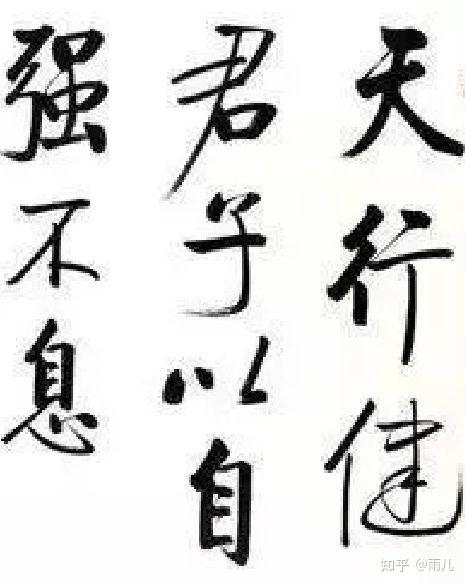 天行健
君子以自
强不息
知乎 @雨儿